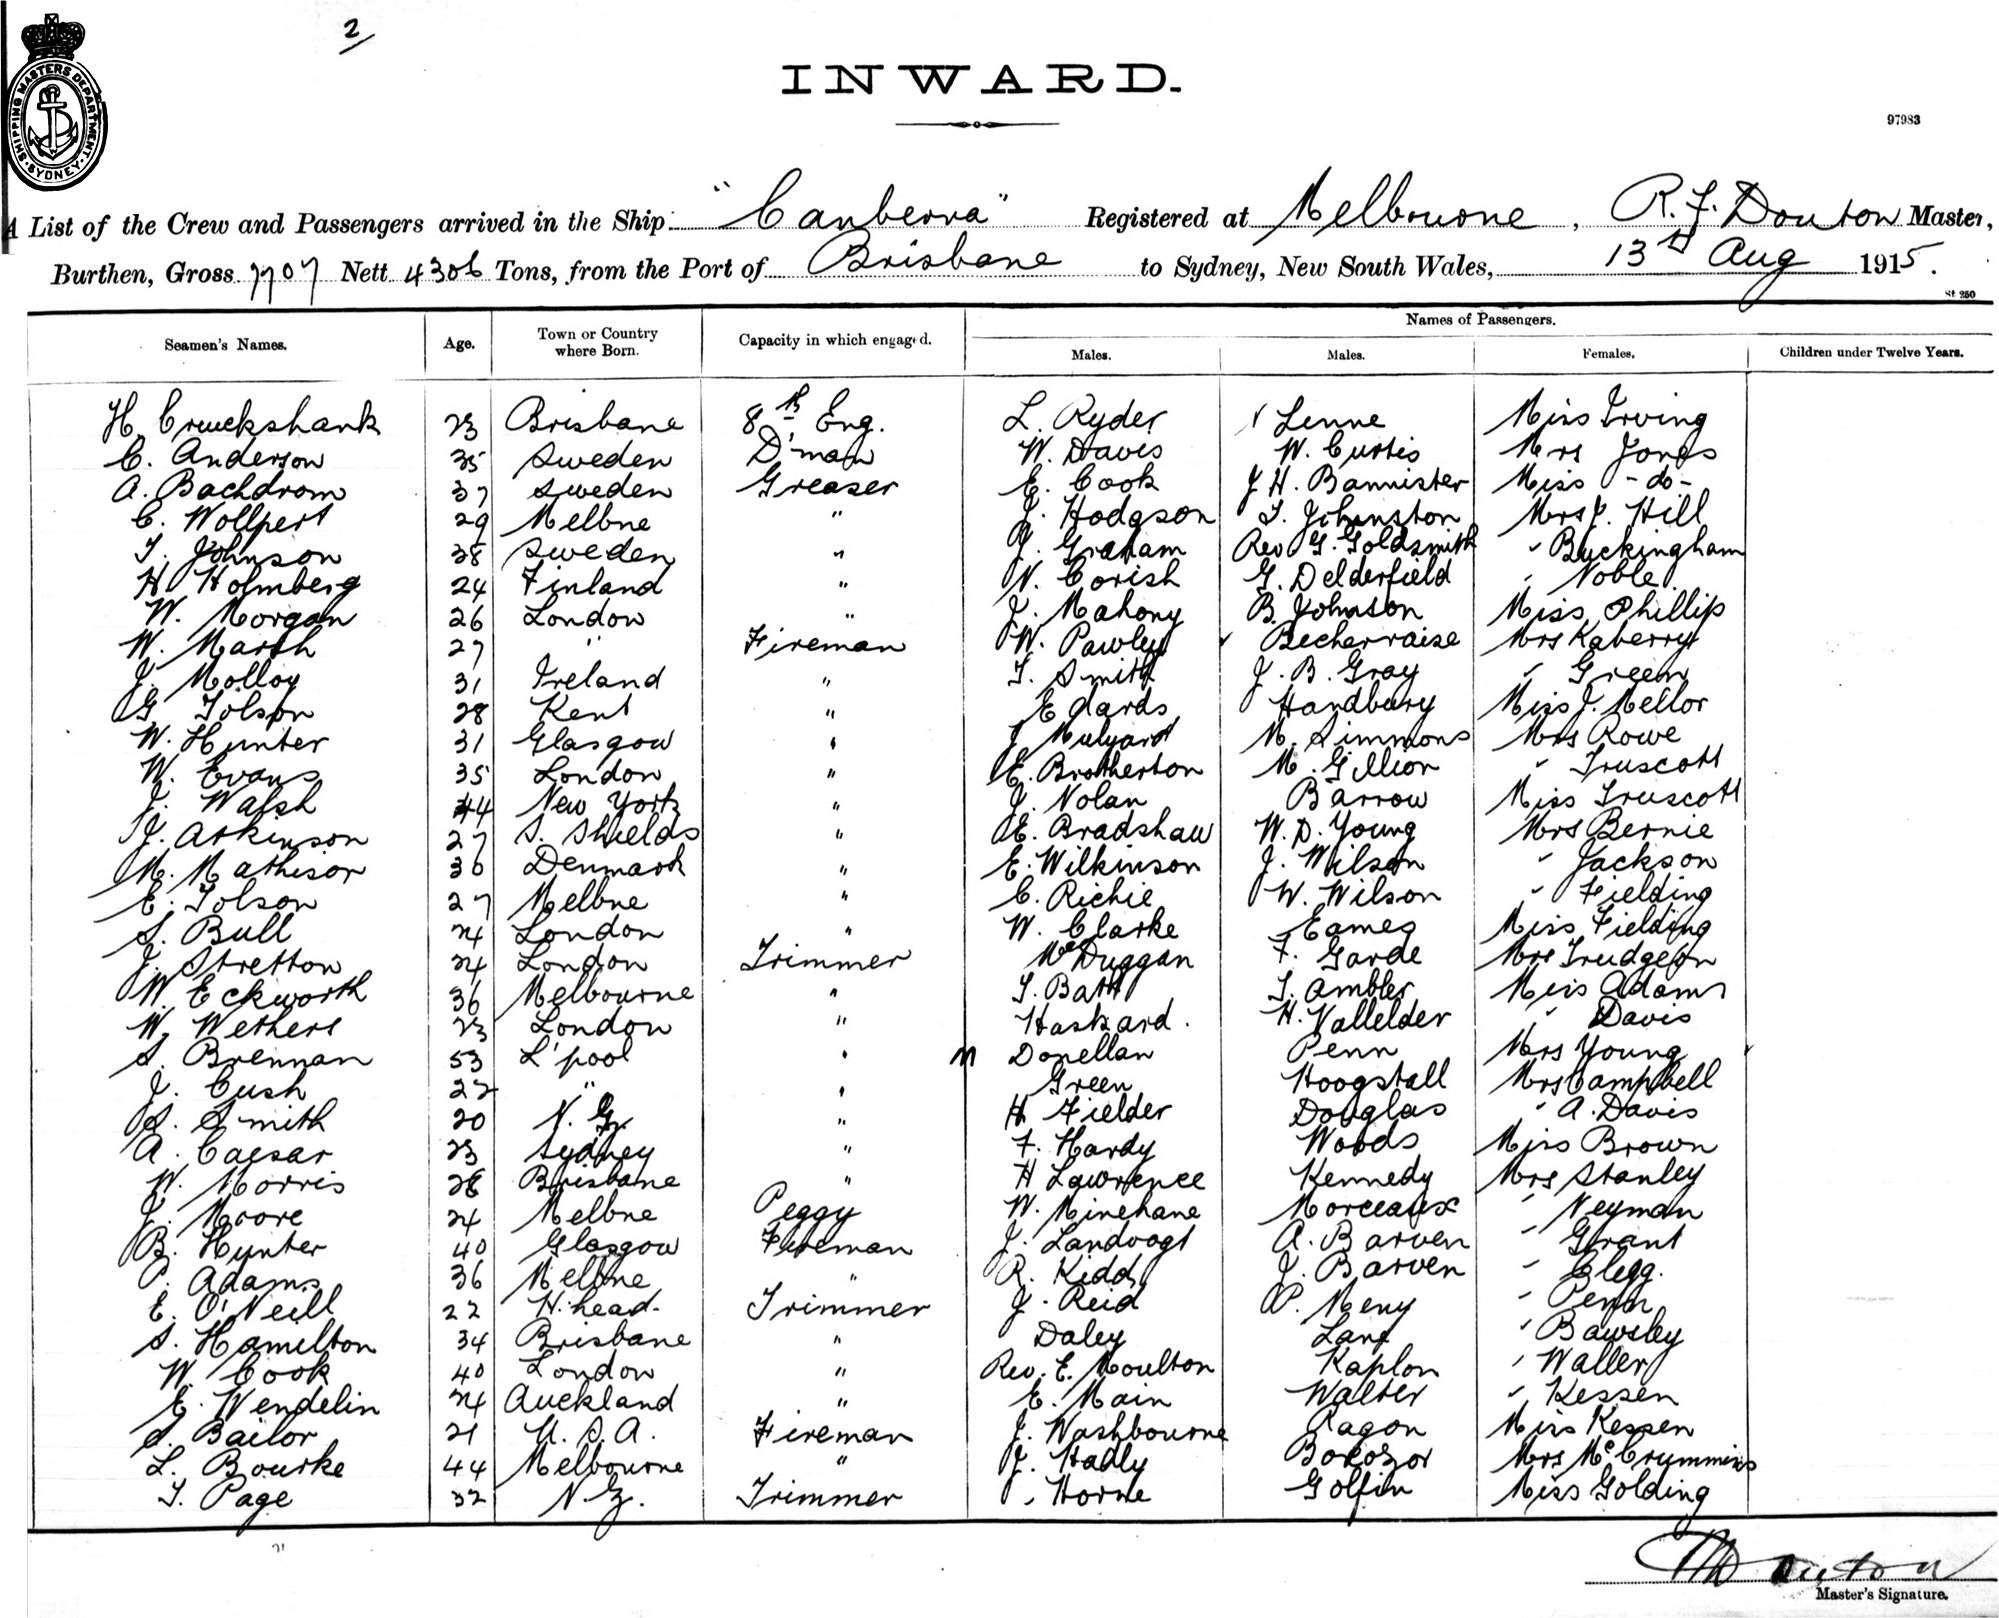 2
SHIPPING MASTERS DEPARTMENT. SYDNEY.
INWARD.
97983
A List of the Crew and Passengers arrived in the Ship "Canberra" Registered at Melbourne, R. F. Douton Master,
Burthen, Gross 7707 Nett 4306 Tons, from the Port of Brisbane to Sydney, New South Wales, 13th Aug 1915.
St. 250
Names of Passengers.
Seamen's Names. Age. Town or Country where Born. Capacity in which engaged. Males. Males. Females. Children under Twelve Years.
H Cruickshank 23 Brisbane 8th Eng. L. Ryder Lenne Miss Irving
C. Anderson 35 Sweden D'man W. Davis W. Curtis Mrs Jones
A. Bachdrom 37 Sweden Greaser E. Cook J H. Bannister Miss -do-
C. Wollpert 29 Melbne " J. Hodgson T. Johnston Mrs J. Hill
T. Johnson 38 Sweden " J. Graham Rev G. Goldsmith " Buckingham
H Holmberg 24 Finland " N. Corish G. Delderfield " Noble
W. Morgan 26 London " J. Mahony B. Johnson Miss Phillip
W. Marsh 27 " Fireman W. Pawley Becherraise Mrs Kaberry
J. Molloy 31 Ireland " T. Smith J. B. Gray " Green
G Tolson 28 Kent " Edards Handbury Miss J. Mellor
W. Hunter 31 Glasgow " J Mulyard M. Simmons Mrs Rowe
W. Evans 35 London " E. Brotherton M. Gillion " Truscott
J. Walsh 44 New York " J. Nolan Barrow Miss Truscott
J. Atkinson 27 S. Shields " E. Bradshaw W. D. Young Mrs Bernie
M. Mathison 36 Denmark " E. Wilkinson J. Wilson " Jackson
E. Tolson 27 Melbne " C. Richie W. Wilson " Fielding
S. Bull 24 London " W. Clarke Eames Miss Fielding
J. Stretton 24 London Trimmer McDuggan F. Garde Mrs Trudgeon
W. Eckworth 36 Melbourne " T. Batt T. Ambler Miss Adams
W. Wethers 23 London " Haskard. H. Vallelder " Davis
S. Brennan 53 L'pool " Donellan Penn Mrs Young
J. Cush 22 " " Green Hoogstall Mrs Campbell
S. Smith 20 N. Z. " H Fielder Douglas " A. Davis
A. Caesar 23 Sydney " F. Hardy Woods Miss Brown
W. Morris 28 Brisbane " H Lawrence Kennedy Mrs Stanley
J. Moore 24 Melbne Peggy W. Minehane Morceaux " Neyman
B. Hunter 40 Glasgow Fireman J. Landvogt A. Barven " Grant
P. Adams 36 Melbne " R. Kidd J. Barven " Clegg.
E. O'Neill 22 H. head. Trimmer J. Reid P. Meny " Penn
S. Hamilton 34 Brisbane " Daley Lane " Bawsley
W. Cook 40 London " Rev. E. Moulton Kaplon " Waller
E. Wendelin 24 Auckland " E. Main Walter " Kessen
S. Bailor 21 U. S. A. Fireman J. Washbourne Ragon Miss Kessen
L. Bourke 44 Melbourne " J. Hadly Borozor Mrs McCrummins
T. Page 32 N. Z. Trimmer Horne Golfin Miss Golding
Douton
Master's Signature.